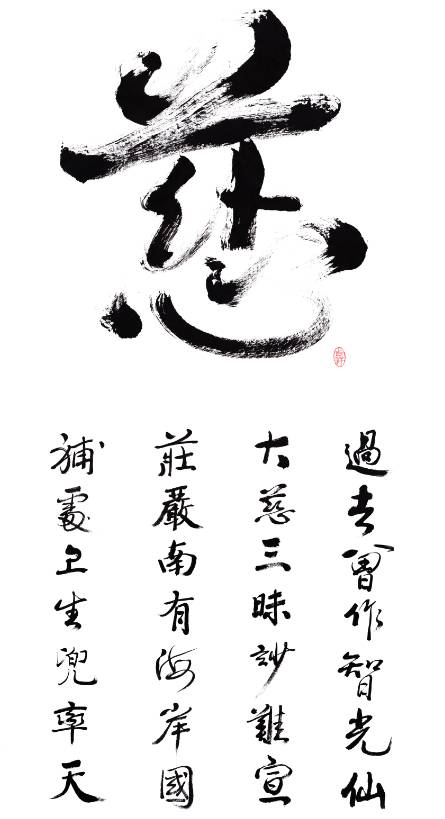 慈
過去曾作智光仙
大慈三昧妙難宣
莊嚴南有海岸國
補處上生兜率天